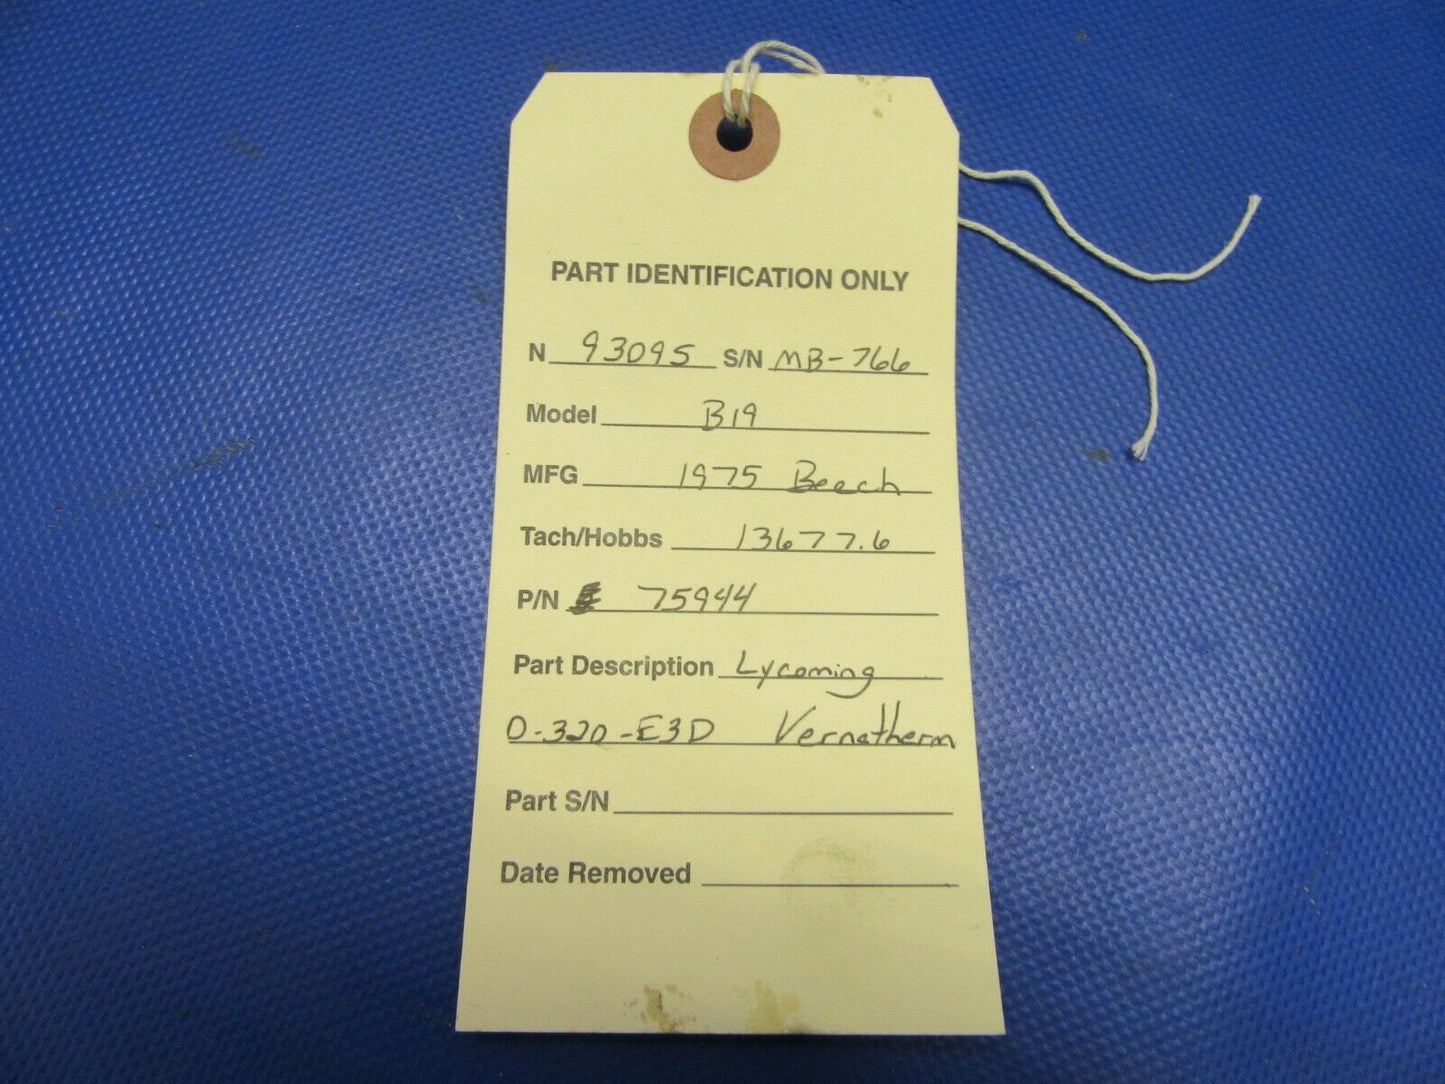 PART IDENTIFICATION ONLY
N 93095 S/N MB-766
Model B19
MFG 1975 Beech
Tach/Hobbs 13677.6
P/N 75944
Part Description Lycoming
O-320-E3D Vernatherm
Part S/N
Date Removed